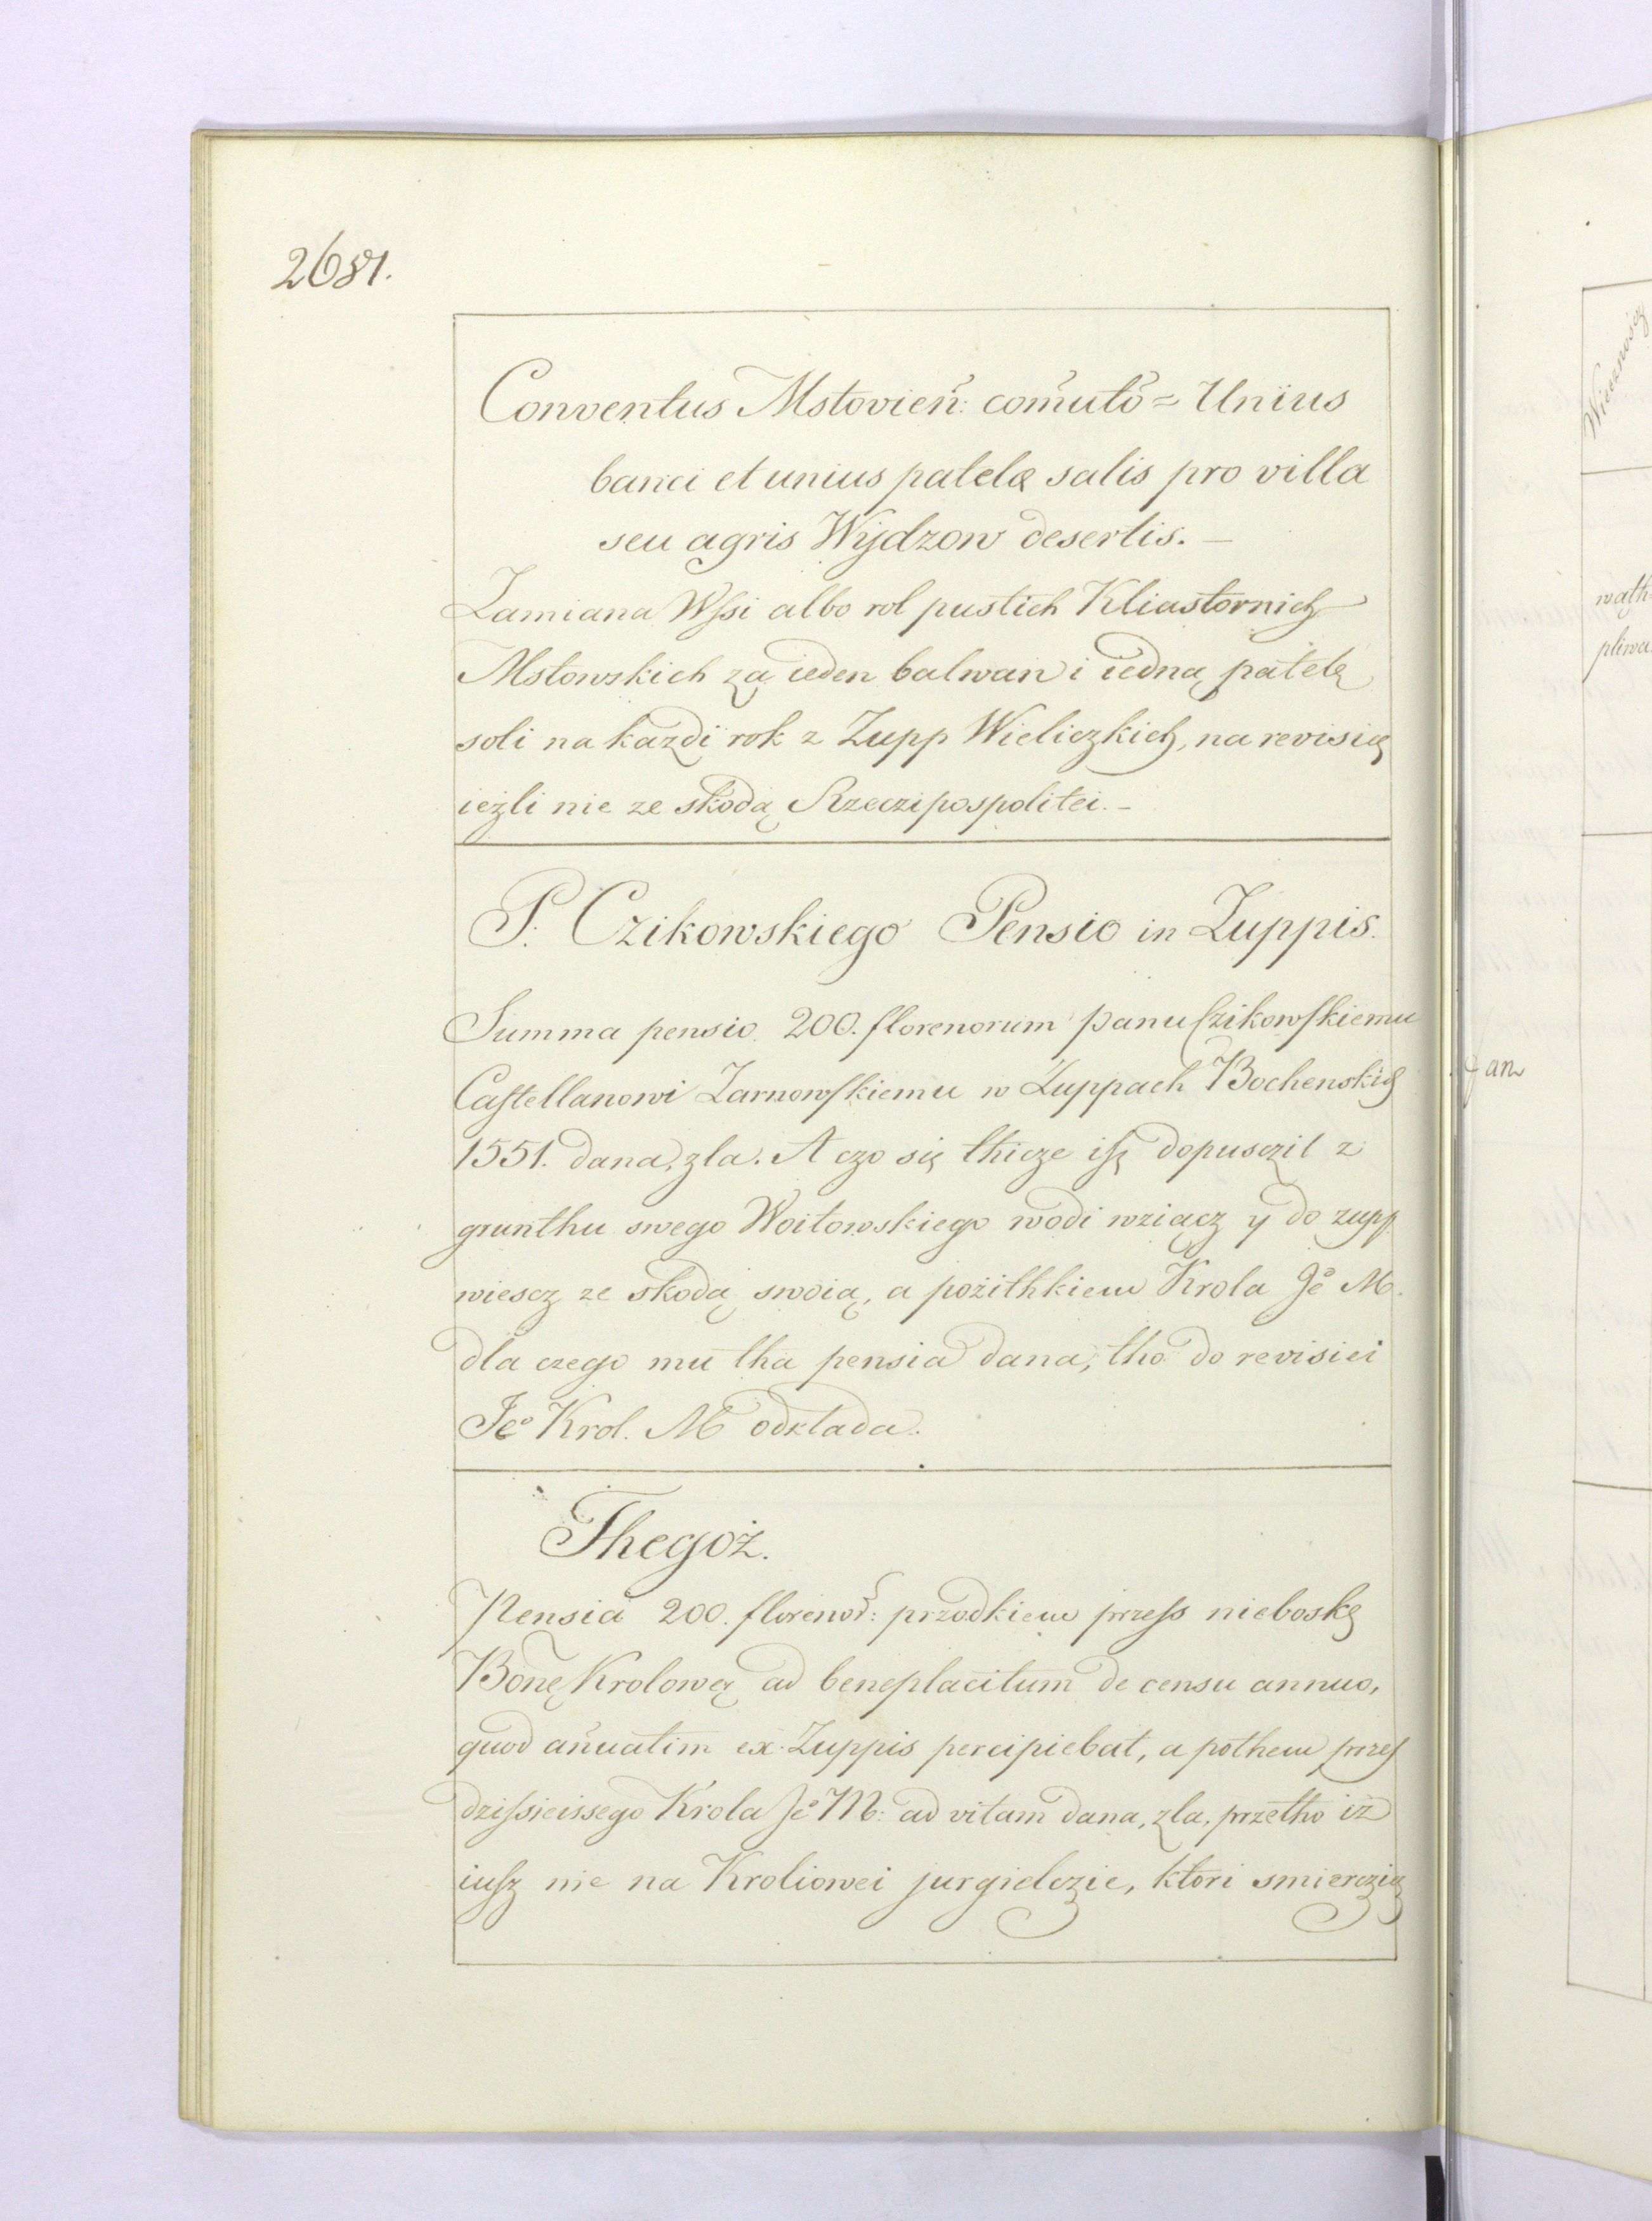 2681.
Conventus Mstovieñ: com̃utõ = Unius
banci et unius patelæ salis pro villa
seu agris Wÿdzow desertis. —
Zamiana Wſsi albo rol pustich Kliastornich
Mstowskich zą ieden balwan i iedną patelę
soli na kazdi rok z Zupp Wieliczkich, na revisią
ieżli nie ze skodą Rzeczipospolitei. –
P. Czikowskiego Pensio in Zuppis.
Summa pensio 200. florenorum Panu Czikowſkiemu
Caſtellanowi Zarnowſkiemu w Zuppach Bochenskich
1551. dana, zla. A czo się thicze iſz dopusczil z
grunthu swego Woitowskiego wodi wziącz y do zupp
wiescz ze skodą swoią, a pożithkiem Krola Je° M.
dla czego mu tha pensia dana, tho do revisiei
Je° Krol. M odklada.
Thegoż.
Pensia 200. florenor̃: przodkiem przeſs nieboskę
Bonę Krolową ad beneplacitum de census annuo,
quod añuatim ex Zuppis percipiebat, a pothem przeſ
dziſsieissego Krola Je° M: ad vitam dana, zla, przetho iż
iuſz nie na Kroliowei jurgielczie, ktori smierczią
Wieczności
wąth
pliwa
an